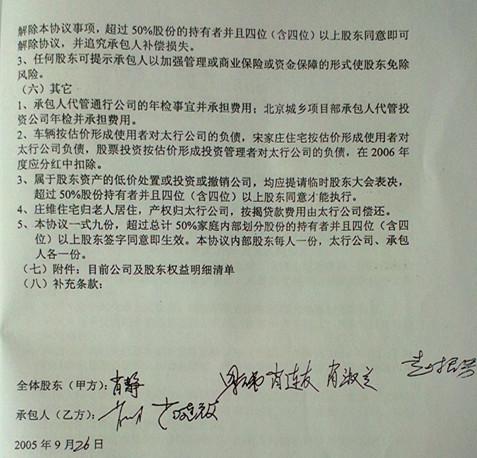 解除本协议事项，超过 50%股份的持有者并且四位（含四位）以上股东同意即可
解除协议，并追究承包人补偿损失。
3、任何股东可提示承包人以加强管理或商业保险或资金保障的形式使股东免除
风险。
（六）其它
1、承包人代管通行公司的年检事宜并承担费用；北京城乡项目部承包人代管投
资公司年检并承担费用。
2、车辆按估价形成使用者对太行公司的负债，宋家庄住宅按估价形成使用者对
太行公司的负债，股票投资按估价形成投资管理者对太行公司的负债，在 2006 年
度应分红中扣除。
3、属于股东资产的低价处置或投资或撤销公司，均应提请临时股东大会表决，
超过 50%股份持有者并且四位（含四位）以上股东同意才能执行。
4、庄维住宅归老人居住，产权归太行公司，按揭贷款费用由太行公司偿还。
5、本协议一式九份，超过总计 50%家庭内部划分股份的持有者并且四位（含四
位）以上股东签字同意即生效。本协议内部股东每人一份，太行公司、承包
人各一份。
（七）附件：目前公司及股东权益明细清单
（八）补充条款：
全体股东（甲方）：肖静 肖连友 肖淑兰
承包人（乙方）：
2005 年 9 月 26 日